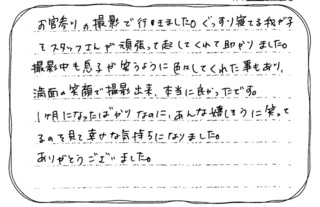 お宮参りの撮影で行きました。ぐっすり寝てる我が子
をスタッフさんが頑張って起してくれて助かりました。
撮影中も息子が笑うように色々してくれた事もあり、
満面の笑顔で撮影出来、本当に良かったです。
1ヶ月になったばかりなのに、あんな嬉しそうに笑って
るので見て幸せな気持ちになりました。
ありがとうございました。